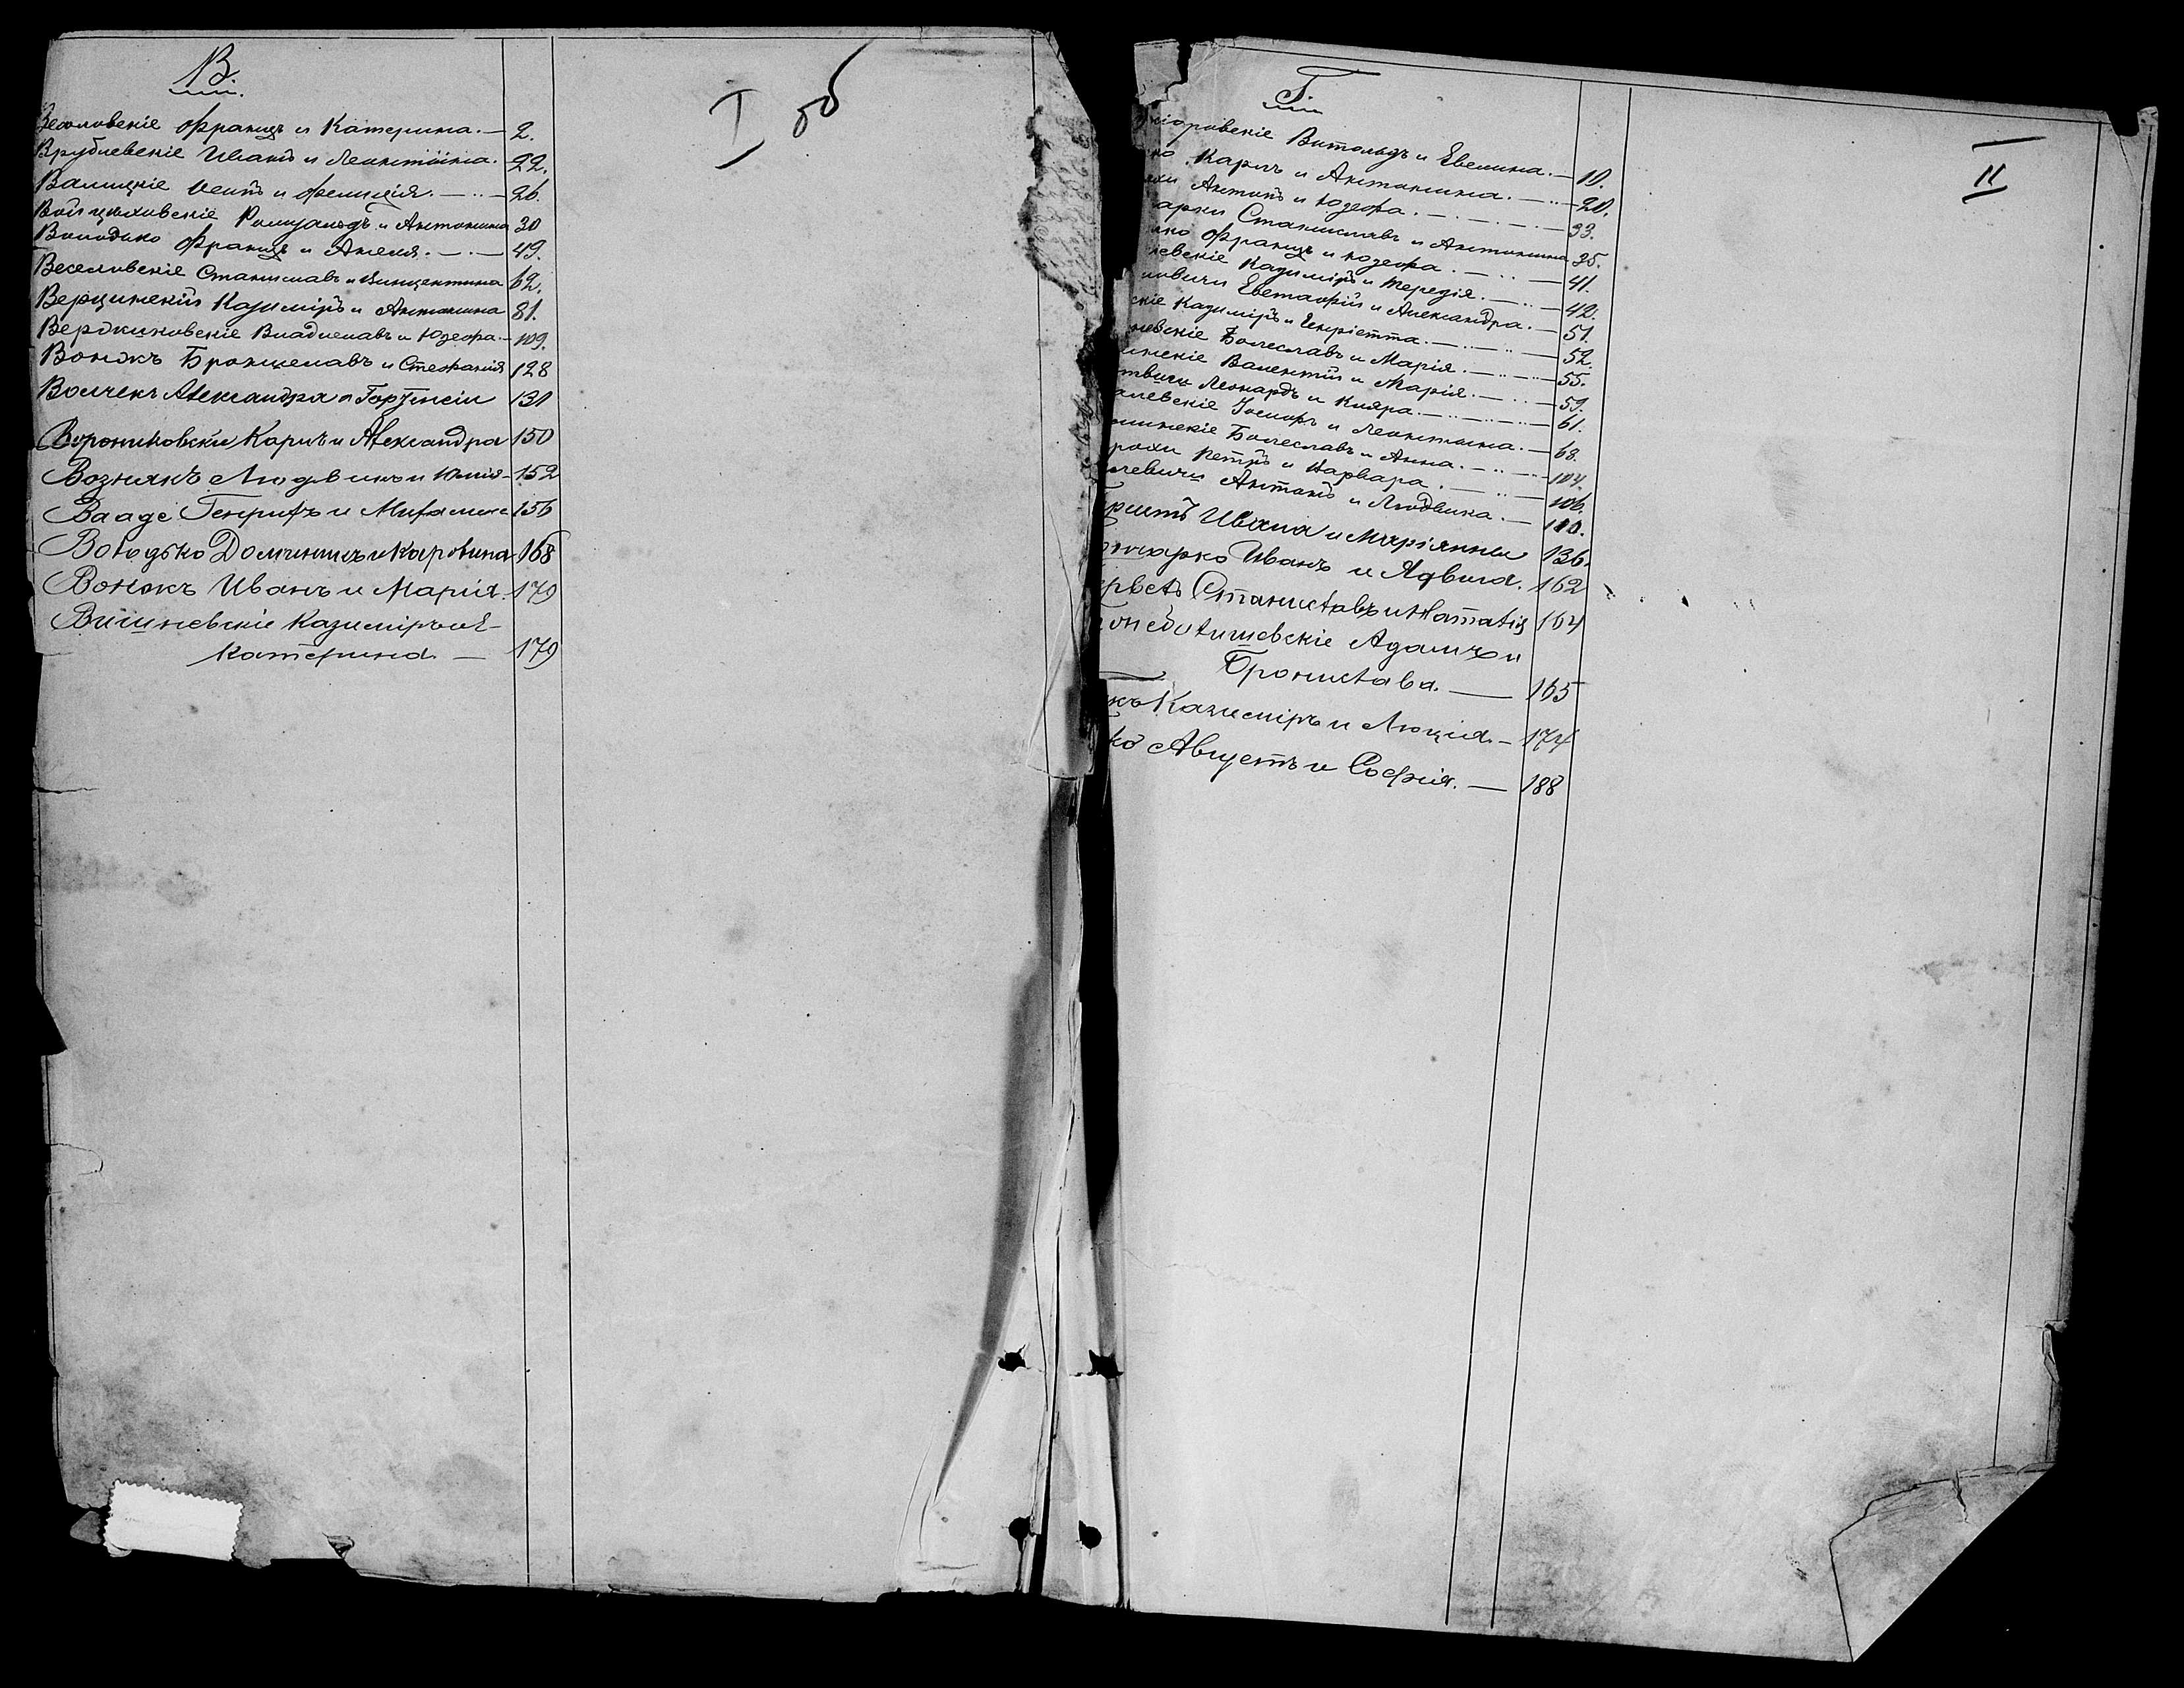 В.
I об
Веселовскіе Францъ и Катерина. — 2.
Врублевскіе Иванъ и Леонтина. — 22.
Валицкіе Игнатъ и Фелиція. — 26.
Войцѣховскіе Ромуальдъ и Антонина 30
Володько Францъ и Анеля. — 49.
Веселовскіе Станиславъ и Винцентина 62.
Верцинскій Казиміръ и Антонина 81.
Верджиковскіе Владиславъ и Юзефа. — 109.
Вонжъ Брониславъ и Стефанія 128
Волчекъ Александра и Гортенсіи 131
Ворониковскіе Карлъ и Александра 150
Вознякъ Людвикъ и Юлія — 152
Вааде Генрихъ и 156
Володько Доминикъ и Каролина 168
Вонжъ Иванъ и Марія. 179
Вишневскіе Казиміръ и Е-
катерина. — 179
Г.
II
Витольдъ и Евелина. — 10.
Карлъ и Антонина. — 20.
Антонъ и Юзефа. — 33.
Станиславъ и Антонина 35.
Францъ и Юзефа. — 41.
невскіе Казиміръ и Терезія. — 42.
новичи Евстафій и Александра. — 51.
скіе Казиміръ и Генріетта. — 52.
невскіе Болеславъ и Марія. — 55.
инскіе Валентій и Марія. — 59.
Леонардъ и Кляра. — 61.
алевскіе Іосифъ и Леонтина. — 68.
минскіе Болеславъ и Анна. — 104.
рохи Петръ и Варвара. — 106.
левичи Антонъ и Людвика. — 110.
Ивана и Маріанны 136.
Гончарко Иванъ и Ядвига. 162
Станиславъ и Наталія 164
Адамъ и
Бронислава. — 165
къ Казиміръ и Люція. — 174
ко Августъ и Софія. — 188